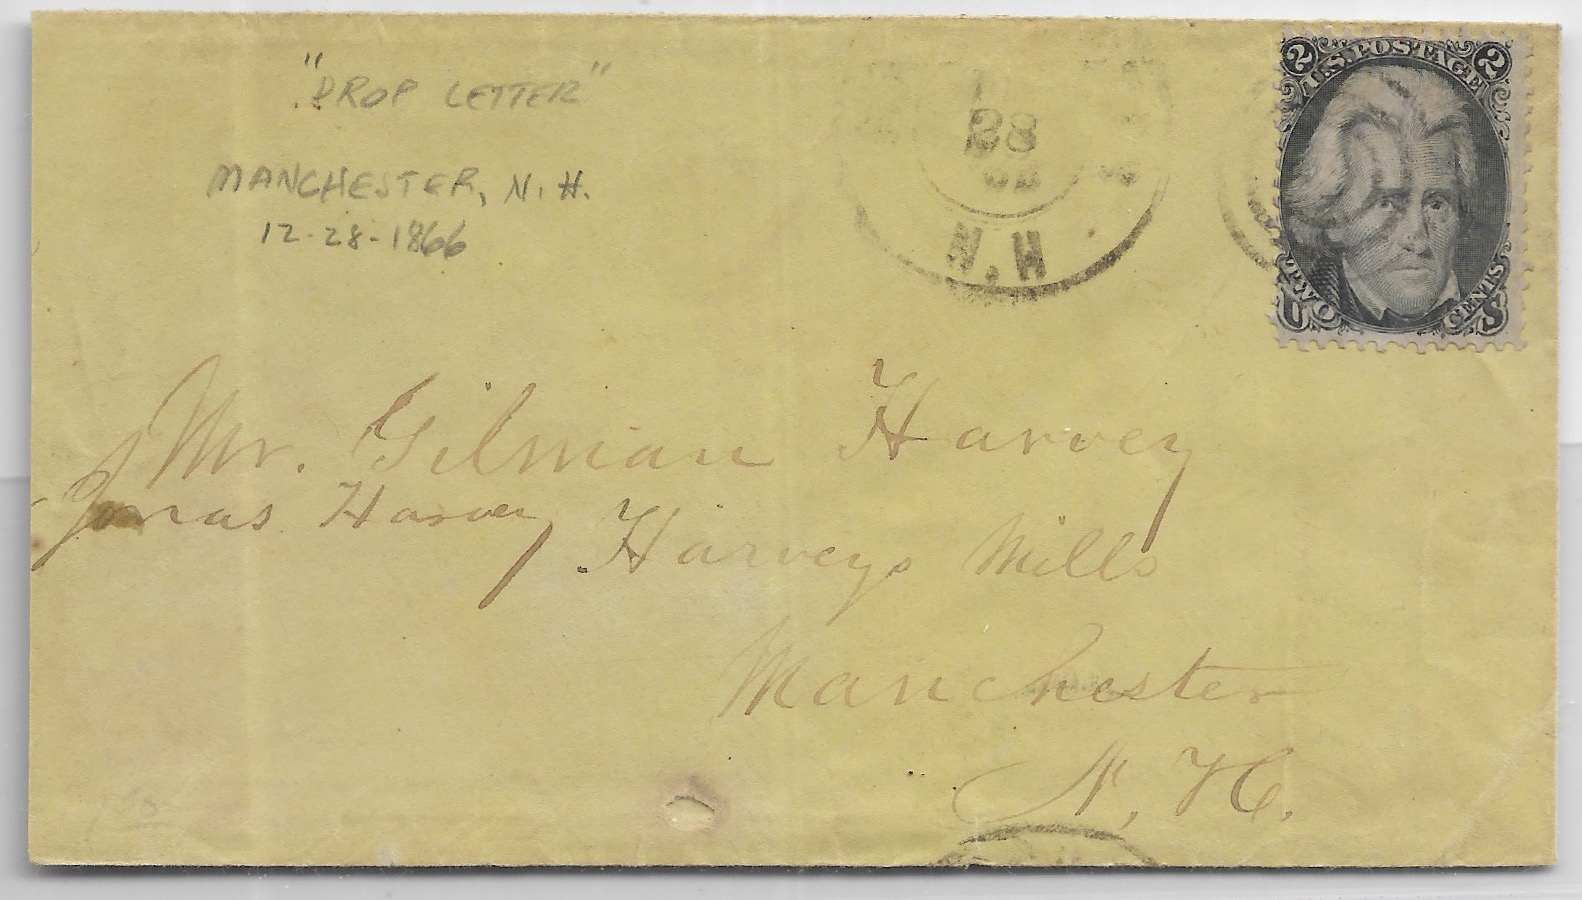 "DROP LETTER"
MANCHESTER, N.H.
12-28-1866
28
N.H
2 U.S. POSTAGE 2
TWO CENTS
U S
Mr. Gilman Harvey
Jonas Harvey Harveys Mills
Manchester
N. H.